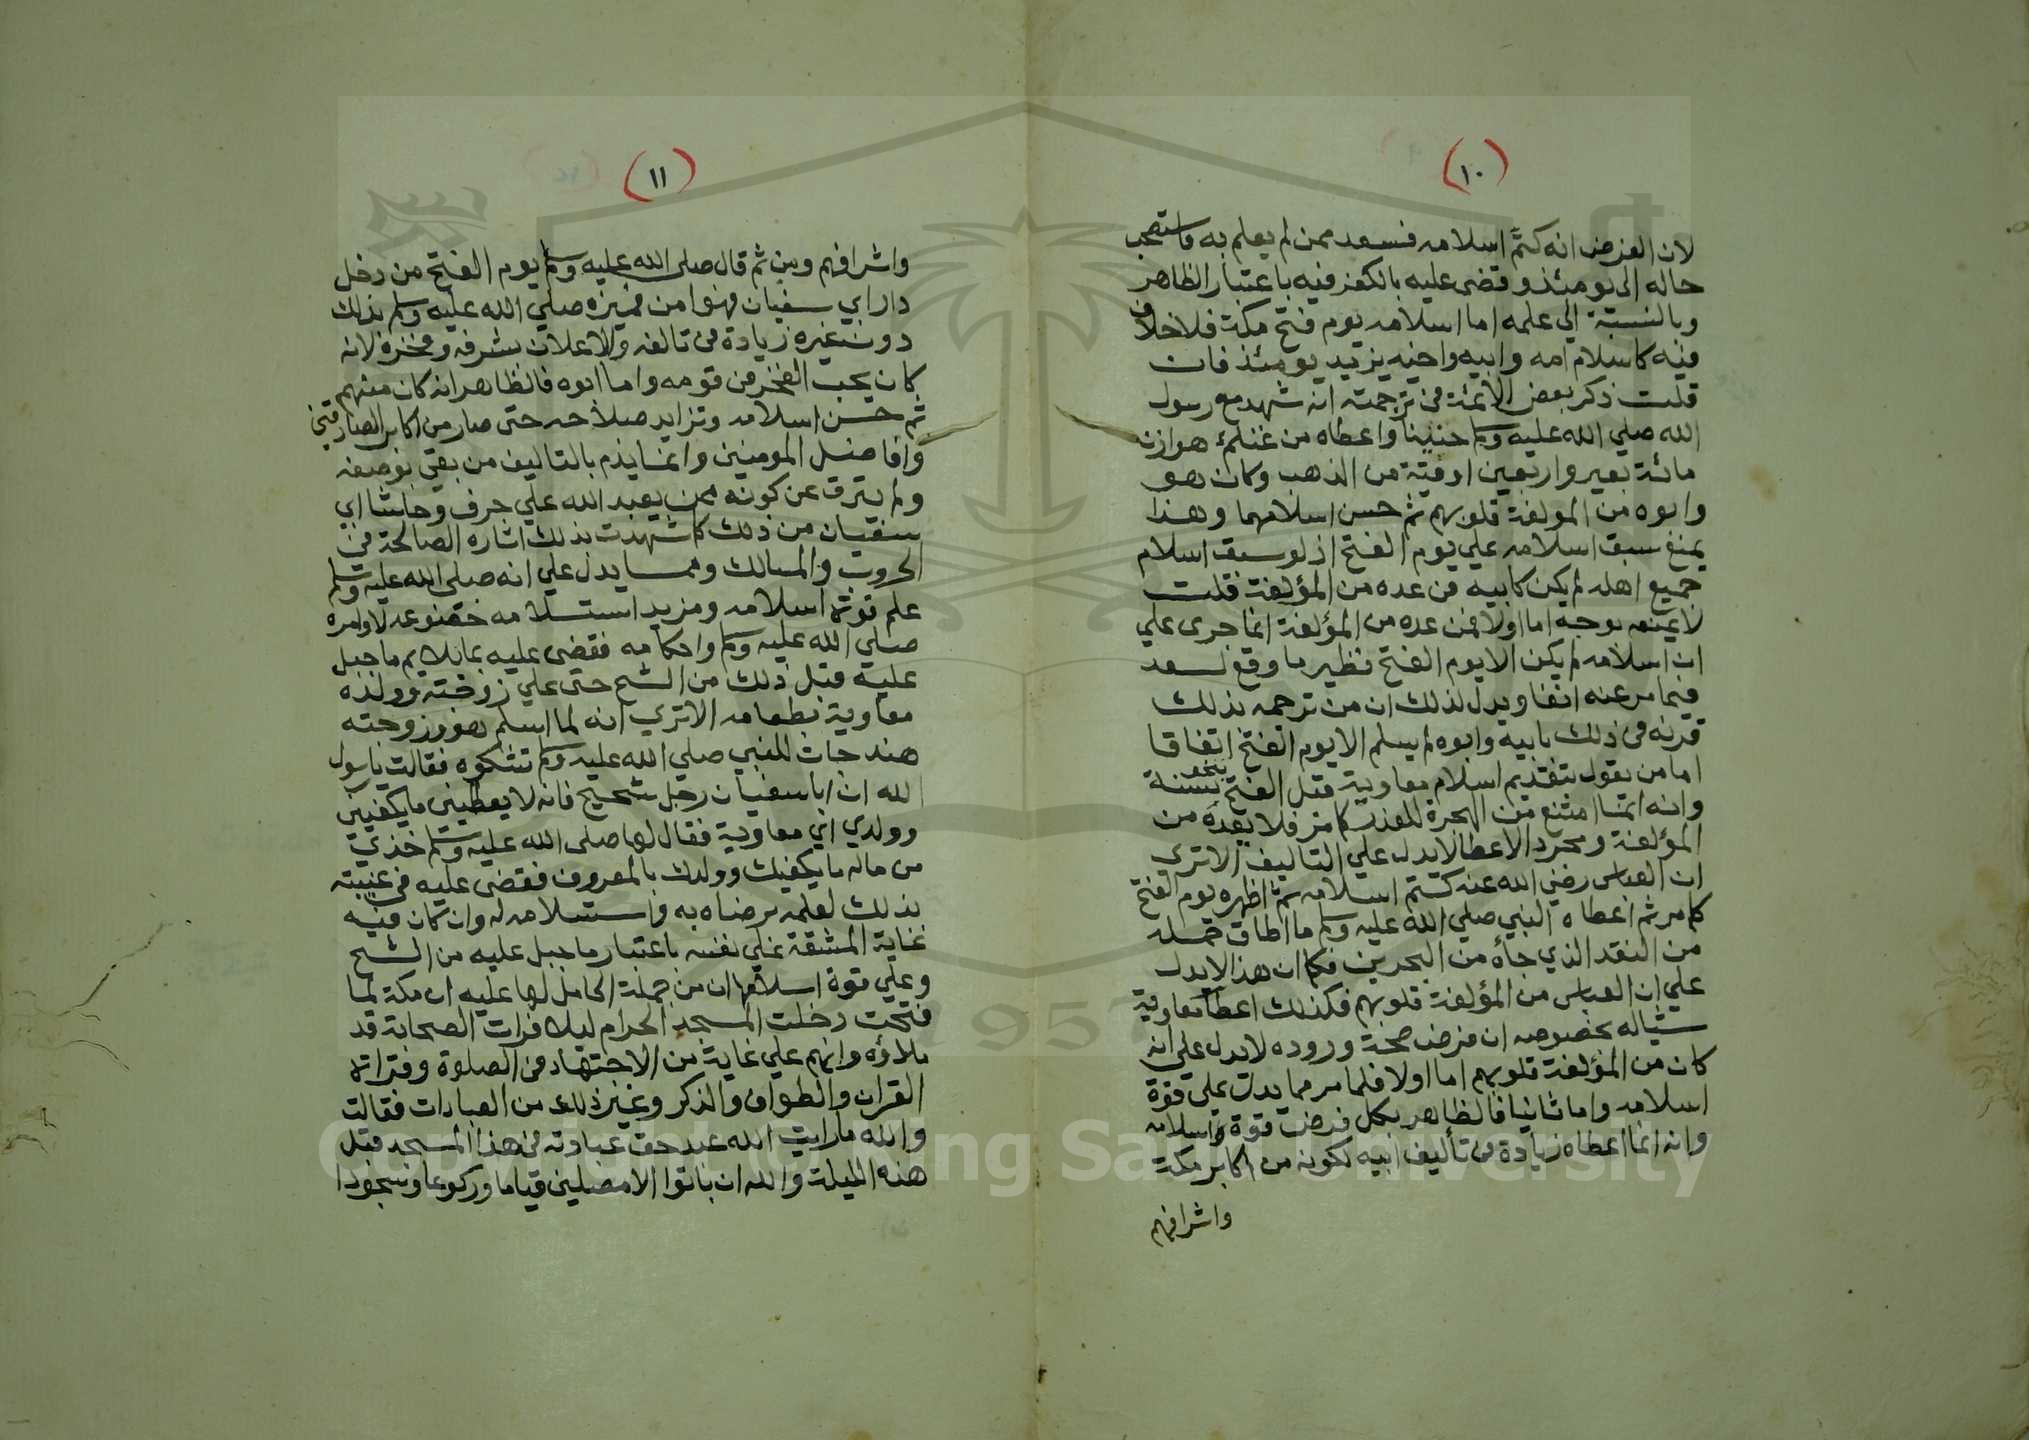 (١٠)
لان الغرض انه كتم اسلامه فسعد ممن لم يعلم به فاستصحب
حاله الى يومئذ وقضى عليه بالكفر فيه باعتبار الظاهر
وبالنسبة الي علمه اما اسلامه يوم فتح مكة فلا خلاف
فيه كاسلام امه وابيه واخيه يزيد يومئذ فان
قلت ذكر بعض الائمة في ترجمته انه شهد مع رسول
الله صلي الله عليه وسلم حنينا واعطاه من غنائم هوازن
مائة بعير واربعين اوقية من الذهب وكان هو
وابوه من المولفة قلوبهم ثم حسن اسلامهما وهذا
يمنع سبق اسلامه علي يوم الفتح اذ لو سبق اسلام
جميع اهله لم يكن كابيه فمن عده من المؤلفة قلت
لا يمنعه بوجه اما اولا فمن عده من المؤلفة انما جرى علي
ان اسلامه لم يكن الا يوم الفتح نظير ما وقع لسعد
فيما مر عنه انفا ويدل لذلك ان من ترجمه بذلك
قرنه في ذلك بابيه وابوه لم يسلم الا يوم الفتح اتفاقا
اما من يقول بتقديم اسلام معاوية قبل الفتح بنحو سنة
وانه انما امتنع من الهجرة للعذر كما مر فلا يعده من
المؤلفة ومجرد الاعطا لا يدل علي التاليف الا تري
ان العباس رضي الله عنه كتم اسلامه ثم اظهره يوم الفتح
كما مر ثم اعطاه النبي صلي الله عليه وسلم ما اطاق حمله
من النقد الذي جاه من البحرين فكما ان هذا لا يدل
علي ان العباس من المؤلفة قلوبهم فكذلك اعطا معاوية
شيا له بخصوصه ان فرض صحة وروده لا يدل علي انه
كان من المؤلفة قلوبهم اما اولا فلما مر مما يدل علي قوة
اسلامه واما ثانيا فالظاهر بكل فرض قوة اسلامه
وانه انما اعطاه زيادة في تأليف ابيه لكونه من اكابر مكة
واشرافهم
(١١)
واشرافهم ومن ثم قال صلي الله عليه وسلم يوم الفتح من دخل
دار ابي سفيان فهو امن فميزه صلي الله عليه وسلم بذلك
دون غيره زيادة في تالفه والاعلان بشرفه وفخره لانه
كان يحب الفخر في قومه واما ابوه فالظاهر انه كان منهم
ثم حسن اسلامه وتزايد صلاحه حتى صار من اكابر الصادقين
وافاضل المومنين وانما يذم بالتاليف من بقي بوصفه
ولم يترق عن كونه ممن يعبد الله علي حرف وحاشا ابي
سفيان من ذلك كما شهدت بذلك اثاره الصالحة في
الحروب والمسالك ومما يدل علي انه صلي الله عليه وسلم
علم قوة اسلامه ومزيد استسلامه خضوعه لاوامره
صلي الله عليه وسلم واحكامه فقضى عليه بما يلايم ما جبل
عليه قبل ذلك من الشح حتى علي زوجته وولده
معاوية بطعامه الا تري انه لما اسلم هو وزوجته
هند جات للنبي صلي الله عليه وسلم تشكوه فقالت يا رسول
الله ان ابا سفيان رجل شحيح فانه لا يعطيني ما يكفيني
وولدي اي معاوية فقال لها صلى الله عليه وسلم خذي
من ماله ما يكفيك وولدك بالمعروف فقضى عليه في غيبته
بذلك لعلمه برضاه به واستسلامه له وان كان فيه
غاية المشقة علي نفسه باعتبار ما جبل عليه من الشح
وعلي قوة اسلامها ان من جملة الحامل لها عليه ان مكة لما
فتحت دخلت المسجد الحرام ليلا فرات الصحابة قد
ملاؤه وانهم علي غاية من الاجتهاد في الصلوة وقراة
القران والطواف والذكر وغير ذلك من العبادات فقالت
والله ما رايت الله عبد حق عبادته في هذا المسجد قبل
هذه الليلة والله ان باتوا الا مصلين قياما وركوعا وسجودا
Copyright © King Saud University
1957